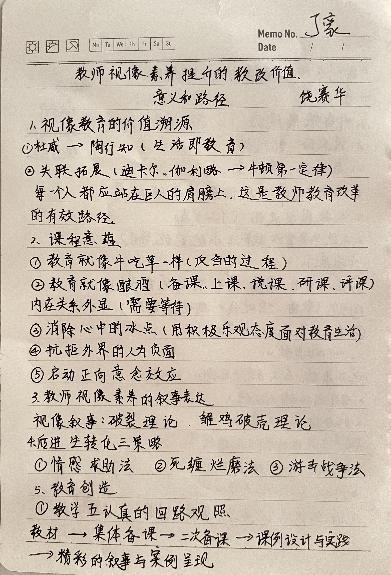 Memo No. 丁豪
Mo Tu We Th Fr Sa Su
Date / /
教师视像素养提升的教改价值.
意义和路径 饶赛华
1.视像教育的价值溯源
①杜威 → 陶行知(生活即教育)
②关联拓展(迪卡尔、伽利略 → 牛顿第一定律)
每一个人都应站在巨人的肩膀上,这是教师教育改革
的有效路径
2、课程意蕴
①教育就像牛吃草一样(反刍的过程)
②教育就像酿酒(备课、上课、说课、研课、评课)
内在关系外显(需要等待)
③消除心中的冰点(用积极乐观态度面对教育生活)
④抗拒外界的人为负面
⑤启动正向意念效应
3.教师视像素养的叙事表达
视像叙事:破裂理论、雏鸡破壳理论
4.后进生转化三策略
①情感求助法 ②死缠烂磨法 ③游击战争法
5、教育创造
①教学五认真的回路观照
教材 → 集体备课 → 二次备课 → 课例设计与实践
→ 精彩的叙事与案例呈现